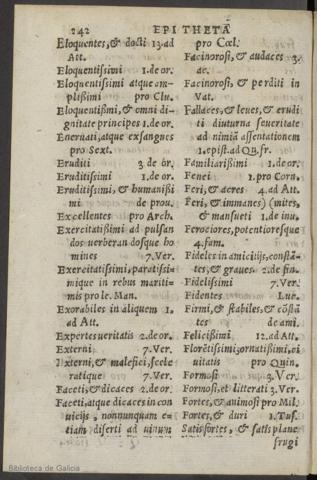 242 EPITHETA
Eloquentes, & docti 13. ad
Att.
Eloquentissimi 1. de or.
Eloquentissimi atque am-
plißimi pro Clu.
Eloquentißimi, & omni di-
gnitate principes 1. de or.
Eneruati, atque exsangues
pro Sext.
Eruditi 3. de or.
Eruditissimi 1. de or.
Eruditissimi, & humanißi
mi de prou.
Excellentes pro Arch.
Exercitatißimi ad pulsan
dos uerberandosque ho
mines 7. Ver.
Exercitatissimi, paratissi-
mique in rebus mariti-
mis pro le. Man.
Exorabiles in aliquem 1.
ad Att.
Expertes ueritatis 2. de or.
Externi 7. Ver.
Externi, & malefici, scele
ratique 7. Ver.
Faceti, & dicaces 2. de or.
Faceti, atque dicaces in con
uicijs, nonnunquam e-
tiam diserti ad uinum
pro Cœl.
Facinorosi, & audaces 3.
ac.
Facinorosi, & perditi in
Vat.
Fallaces, & leues, & erudi
ti diuturna seueritate
ad nimiā assentationem
1. epist. ad QB. fr.
Familiarißimi 1. de or.
Fenei 1. pro Corn.
Feri, & acres 4. ad Att.
Feri, & immanes) (mites,
& mansueti 1. de inu.
Ferociores, potentioresque
4. fam.
Fideles in amicitijs, constā-
tes, & graues 2. de fin.
Fidelissimi 7. Ver.
Fidentes Luc.
Firmi, & stabiles, & cōstā
tes de ami.
Felicißimi 12. ad Att.
Florētissimi, ornatißimi, ci
uitatis pro Quin.
Formosi 3. Ver.
Formosi, et litterati 7. Ver.
Fortes, & animosi pro Mil.
Fortes, & duri 1. Tus.
Satis fortes, & satis plane
frugi
Biblioteca de Galicia